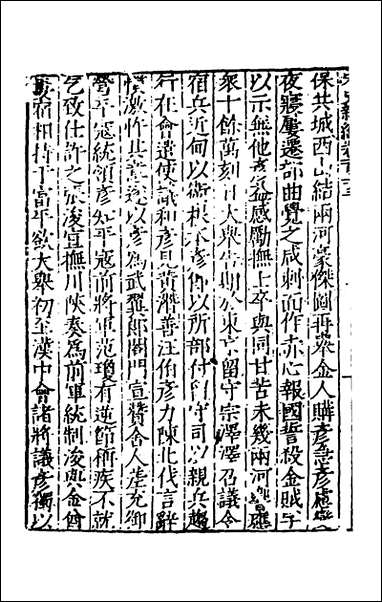 宋史新編卷百
保共城西山結兩河豪傑圖再舉金人購彥急彥慮變
夜寢屢遷部曲覺之咸刺面作赤心報國誓殺金賊字
以示無他彥益感勵撫士卒與同甘苦未幾兩河響應
衆十餘萬刻日大舉告期於東京留守宗澤澤召議令
宿兵近甸以衛根本彥即以所部付留守司以親兵趨
行在會遣使議和彥見黃潛善汪伯彥力陳北伐言辭
憤激忤其意遂以彥為武翼郎閤門宣贊舍人差充御
營平寇統領彥知平寇前將軍范瓊有逆節稱疾不就
乞致仕許之張浚宣撫川陝奏為前軍統制浚與金酋
婁宿相持于富平欲大舉初至漢中會諸將議彥獨以